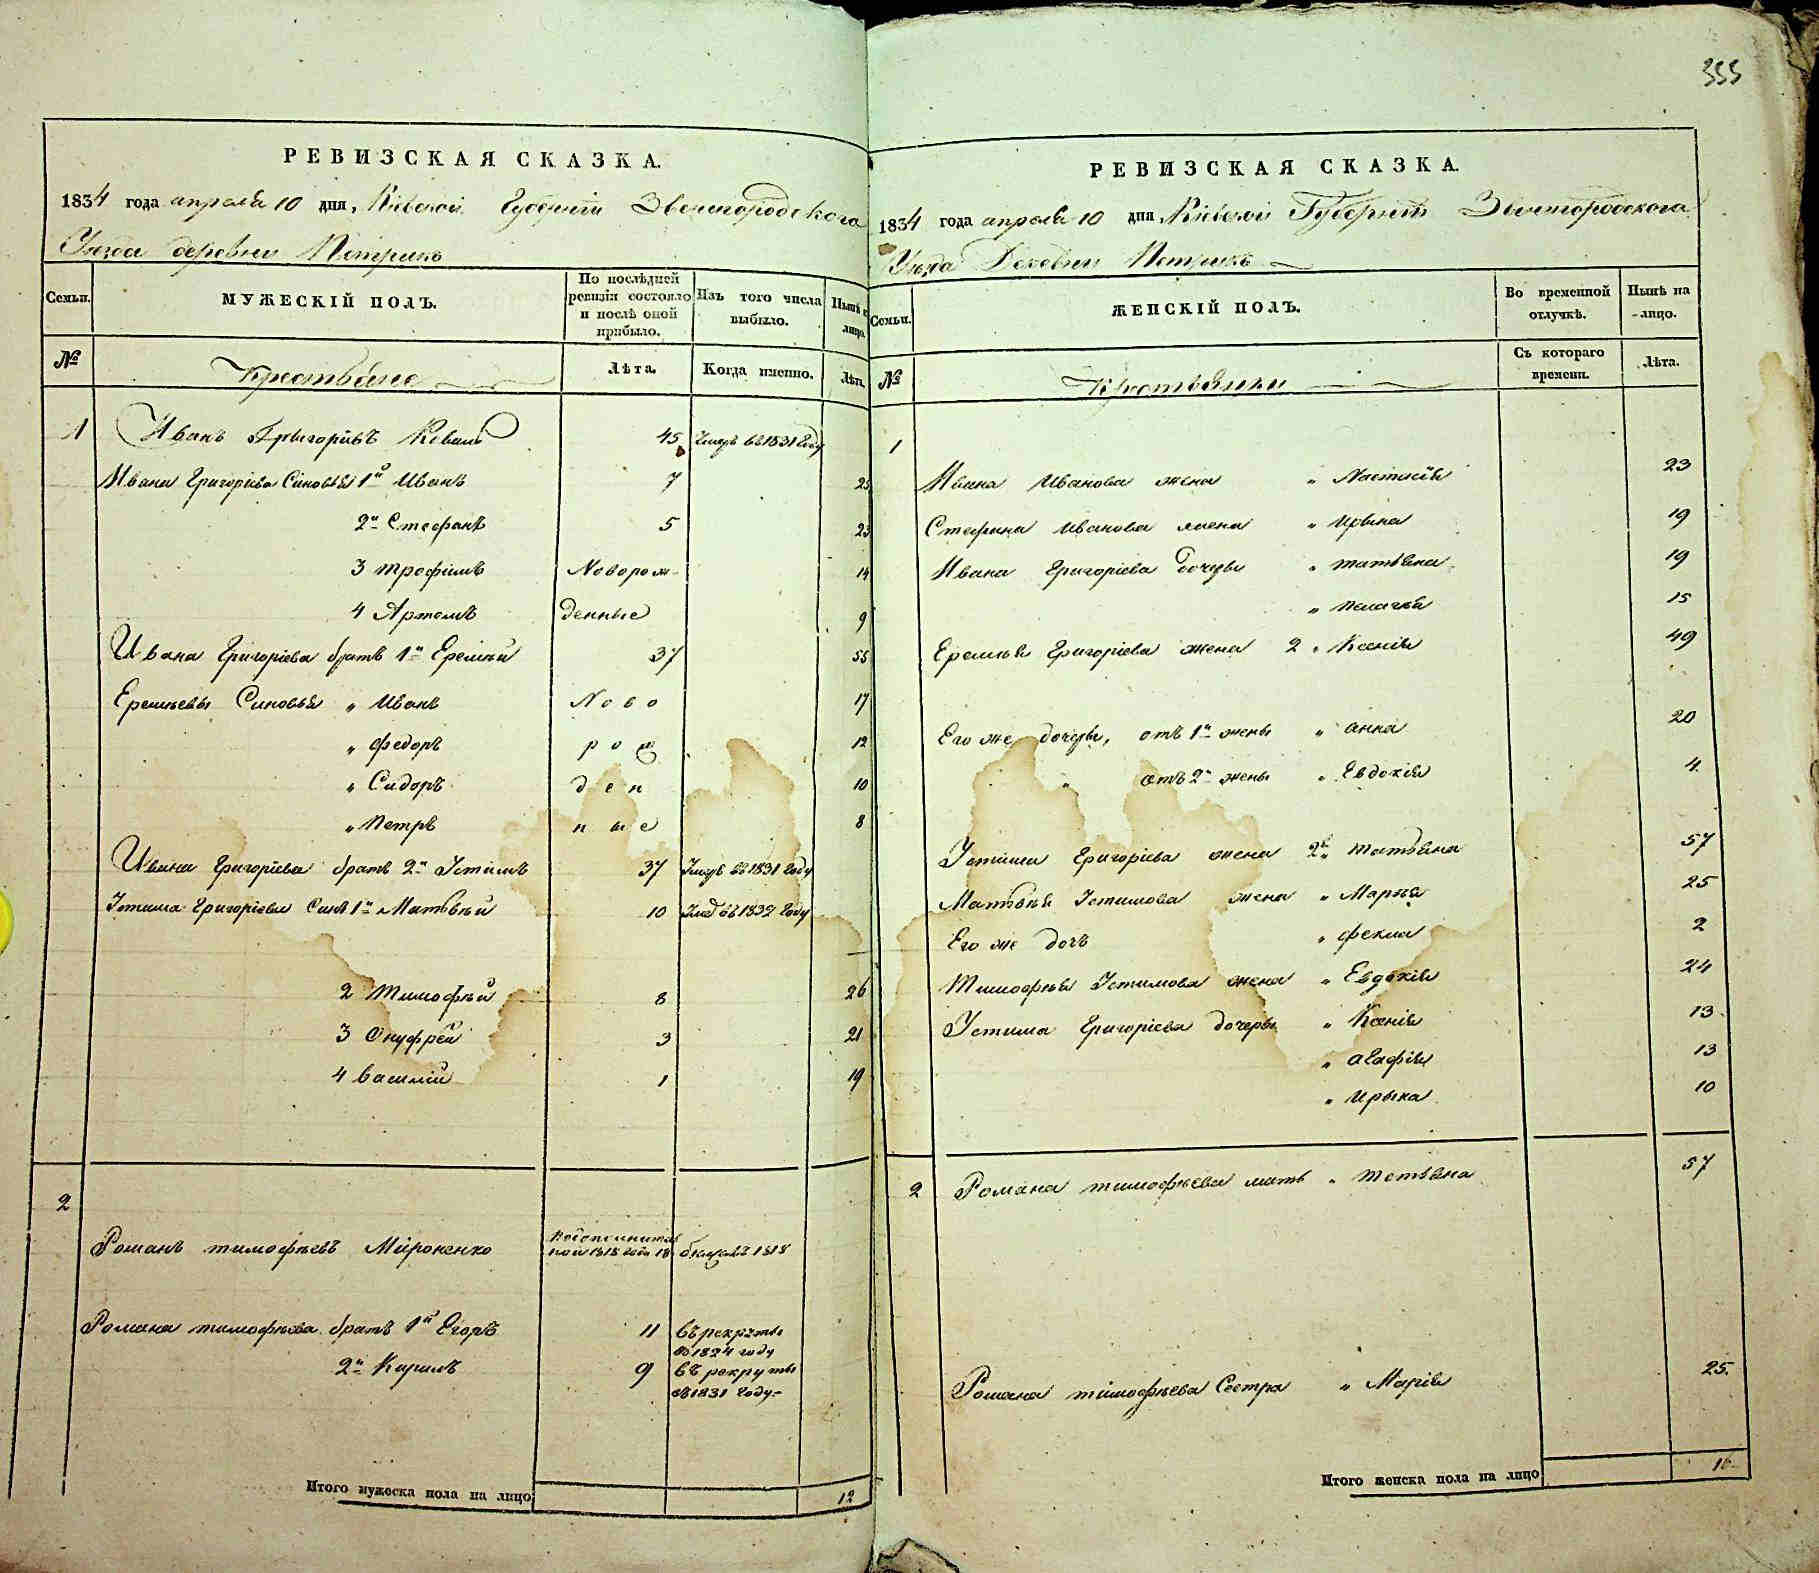 355
РЕВИЗСКАЯ СКАЗКА.
1834 года апреля 10 дня, Кіевской Губерніи Звенигородскаго
Уезда деревни Петрикъ
Семьи.
МУЖЕСКІЙ ПОЛЪ.
По послѣдней ревизіи состояло и послѣ оной прибыло.
Изъ того числа выбыло.
Нынѣ на лицо.
№
Крестьяне
Лѣта.
Когда именно.
Лѣта.
1 Иванъ Григорiевъ Коваль 45 Умеръ въ 1831 Году
Ивана Григоріева Сыновья 1й Иванъ 7 25
2й Стефанъ 5 23
3 Трофимъ Новорож- 14
4 Артемъ денные 9
Ивана Григоріева братъ 1й Еремѣй 37 55
Еремѣевы Сыновья „ Иванъ Ново 17
„ Федоръ рож 12
„ Сидоръ ден 10
„ Петръ ные 8
Ивана Григоріева братъ 2й Устимъ 37 Умеръ въ 1831 Году
Устима Григоріева Синъ 1й Матвѣй 10 Умеръ въ 1832 Году
2 Тимофѣй 8 26
3 Онуфрей 3 21
4 Василій 1 19
2
Романъ Тимофѣевъ Мироненко 1818 года 18 1818
Романа Тимофѣева братъ 1й Егоръ 11 въ рекруты
въ 1824 году
2й Кирилъ 9 въ рекруты
въ 1831 Году
Итого мужеска пола на лицо 12
РЕВИЗСКАЯ СКАЗКА.
1834 года апреля 10 дня, Кіевской Губерніи Звенигородскаго
Уезда Деревни Петрикъ
Семьи.
ЖЕНСКІЙ ПОЛЪ.
Во временной отлучкѣ.
Нынѣ на лицо.
№
Крестьянки
Съ котораго времени.
Лѣта.
1
Ивана Иванова жена „ Настасія 23
Стефана Иванова жена „ Ирина 19
Ивана Григоріева дочери „ Татьяна 19
„ Пелагея 15
Еремѣя Григоріева жена 2 „ Ксенія 49
Его же дочери, отъ 1й жены „ Анна 20
„ отъ 2й жены „ Евдокія 4
Устима Григоріева жена 2я „ Татьяна 57
Матвѣя Устимова жена „ Марья 25
Его же дочь „ Фекла 2
Тимофѣя Устимова жена „ Евдокія 24
Устима Григоріева дочери „ Ксенія 13
„ Агафія 13
„ Ирына 10
2 Романа Тимофѣева мать „ Татьяна 57
Романа Тимофѣева Сестра „ Марія 25.
Итого женска пола на лицо 16